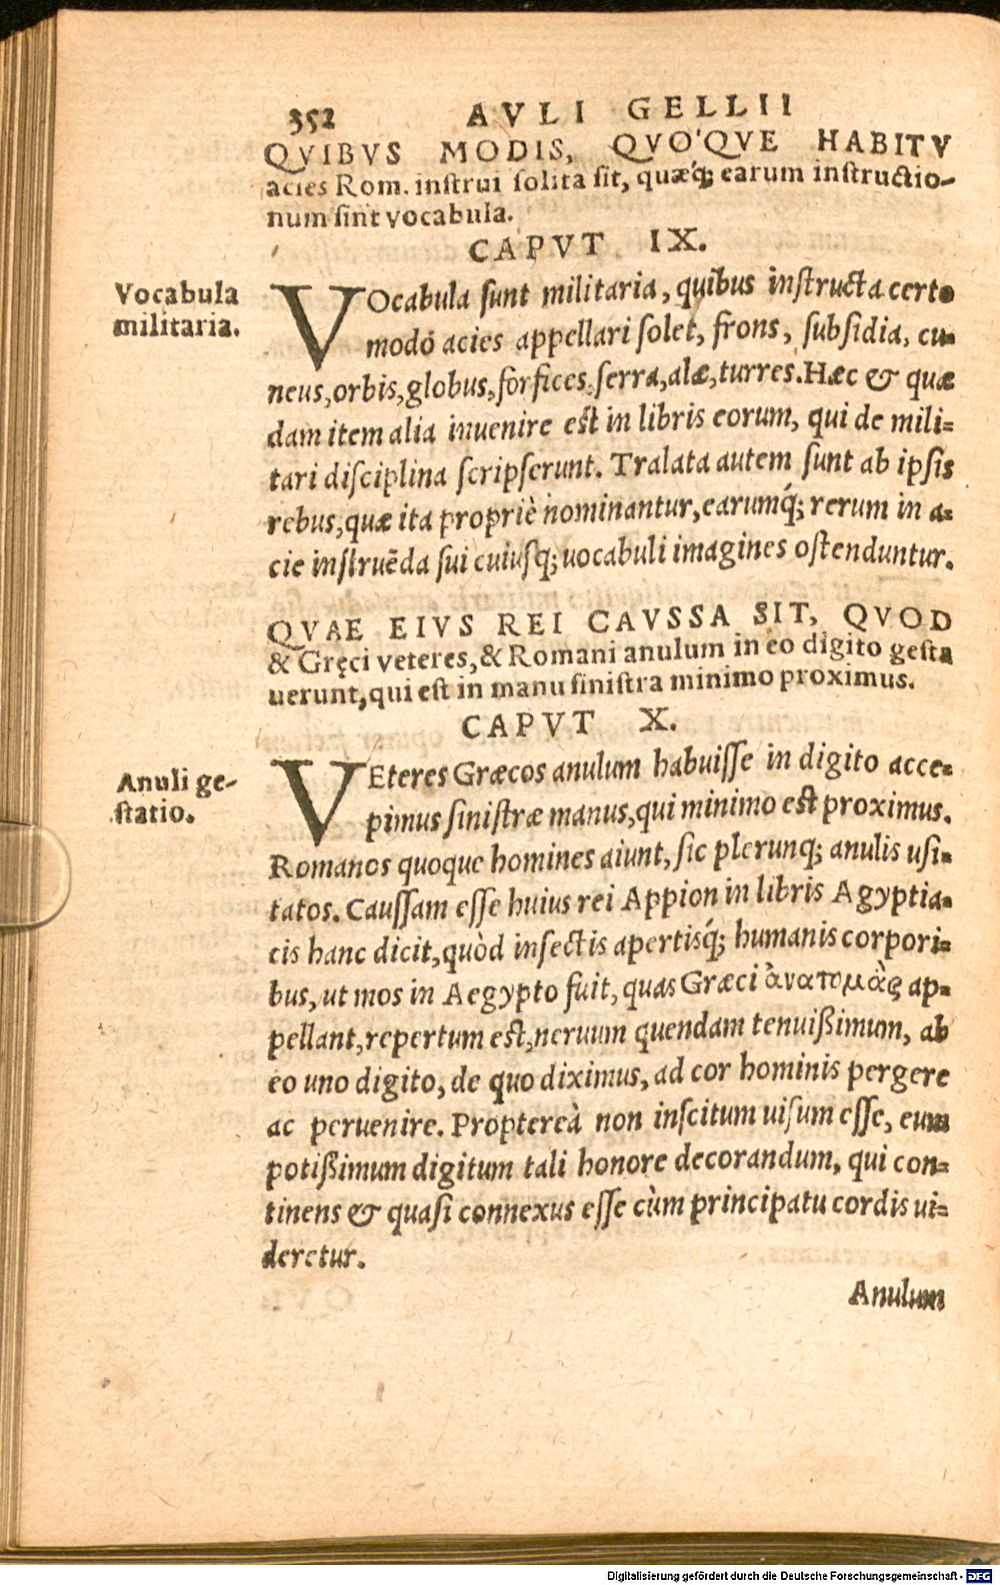 352 AVLI GELLII
QVIBVS MODIS, QVO'QVE HABITV
acies Rom. instrui solita sit, quæq́; earum instructio-
num sint vocabula.
CAPVT IX.
Vocabula
militaria.
VOcabula sunt militaria, quibus instructa certo
modo acies appellari solet, frons, subsidia, cu-
neus, orbis, globus, forfices, serra, alæ, turres. Hæc & quæ
dam item alia inuenire est in libris eorum, qui de mili-
tari disciplina scripserunt. Tralata autem sunt ab ipsis
rebus, quæ ita propriè nominantur, earumq́; rerum in a-
cie instruēda sui cuiusq; uocabuli imagines ostenduntur.
QVAE EIVS REI CAVSSA SIT, QVOD
& Gręci veteres, & Romani anulum in eo digito gesta
uerunt, qui est in manu sinistra minimo proximus.
CAPVT X.
Anuli ge-
statio.
VEteres Græcos anulum habuisse in digito acce-
pimus sinistræ manus, qui minimo est proximus.
Romanos quoque homines aiunt, sic plerunq; anulis usi-
tatos. Caussam esse huius rei Appion in libris Agyptia-
cis hanc dicit, quòd insectis apertisq́; humanis corpori-
bus, ut mos in Aegypto fuit, quas Græci ἀνατομὰς ap-
pellant, repertum est, neruum quendam tenuißimum, ab
eo uno digito, de quo diximus, ad cor hominis pergere
ac peruenire. Proptereà non inscitum uisum esse, eum
potißimum digitum tali honore decorandum, qui con-
tinens & quasi connexus esse cùm principatu cordis ui-
deretur.
Anulum
Digitalisierung gefördert durch die Deutsche Forschungsgemeinschaft - DFG